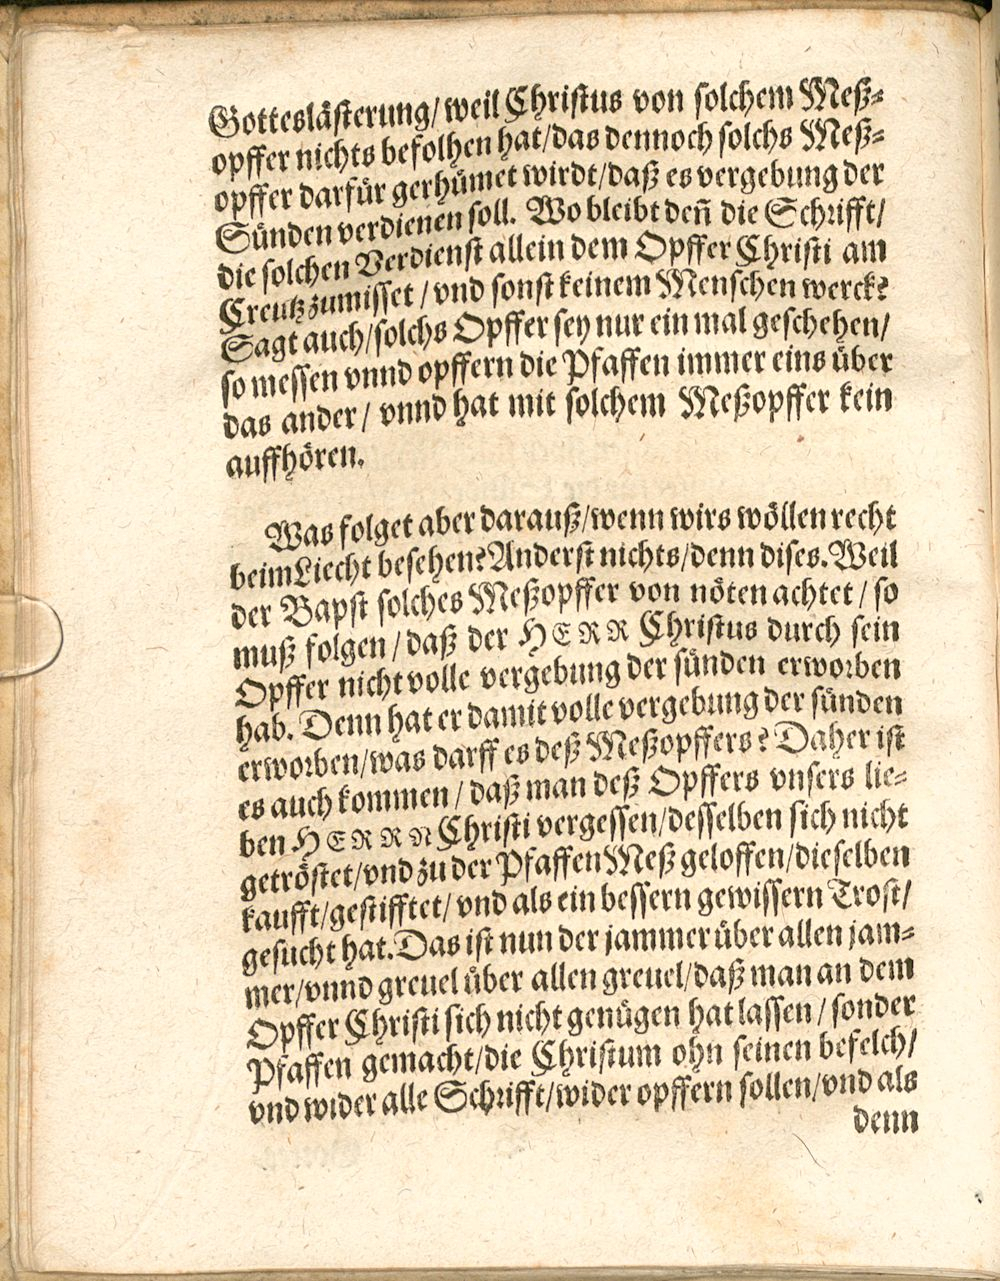 Gotteslästerung/ weil Christus von solchem Meß-
opffer nichts befolhen hat/das dennoch solchs Meß-
opffer darfür gerhümet wirdt/daß es vergebung der
Sünden verdienen soll. Wo bleibt deñ die Schrifft/
die solchen Verdienst allein dem Opffer Christi am
Creutz zumisset / vnd sonst keinem Menschen werck?
Sagt auch/solchs Opffer sey nur ein mal geschehen/
so messen vnnd opffern die Pfaffen immer eins über
das ander / vnnd hat mit solchem Meßopffer kein
auffhören.
Was folget aber darauß/wenn wirs wöllen recht
beim Liecht besehen? Anderst nichts/denn dises. Weil
der Bapst solches Meßopffer von nöten achtet / so
muß folgen / daß der HERR Christus durch sein
Opffer nicht volle vergebung der sünden erworben
hab. Denn hat er damit volle vergebung der sünden
erworben/was darff es deß Meßopffers? Daher ist
es auch kommen / daß man deß Opffers vnsers lie-
ben HERRN Christi vergessen/desselben sich nicht
getröstet/vnd zu der Pfaffen Meß geloffen/dieselben
kaufft/gestifftet/ vnd als ein bessern gewissern Trost/
gesucht hat. Das ist nun der jammer über allen jam-
mer/vnnd greuel über allen greuel/daß man an dem
Opffer Christi sich nicht genügen hat lassen / sonder
Pfaffen gemacht/die Christum ohn seinen befelch/
vnd wider alle Schrifft/wider opffern sollen/vnd als
denn